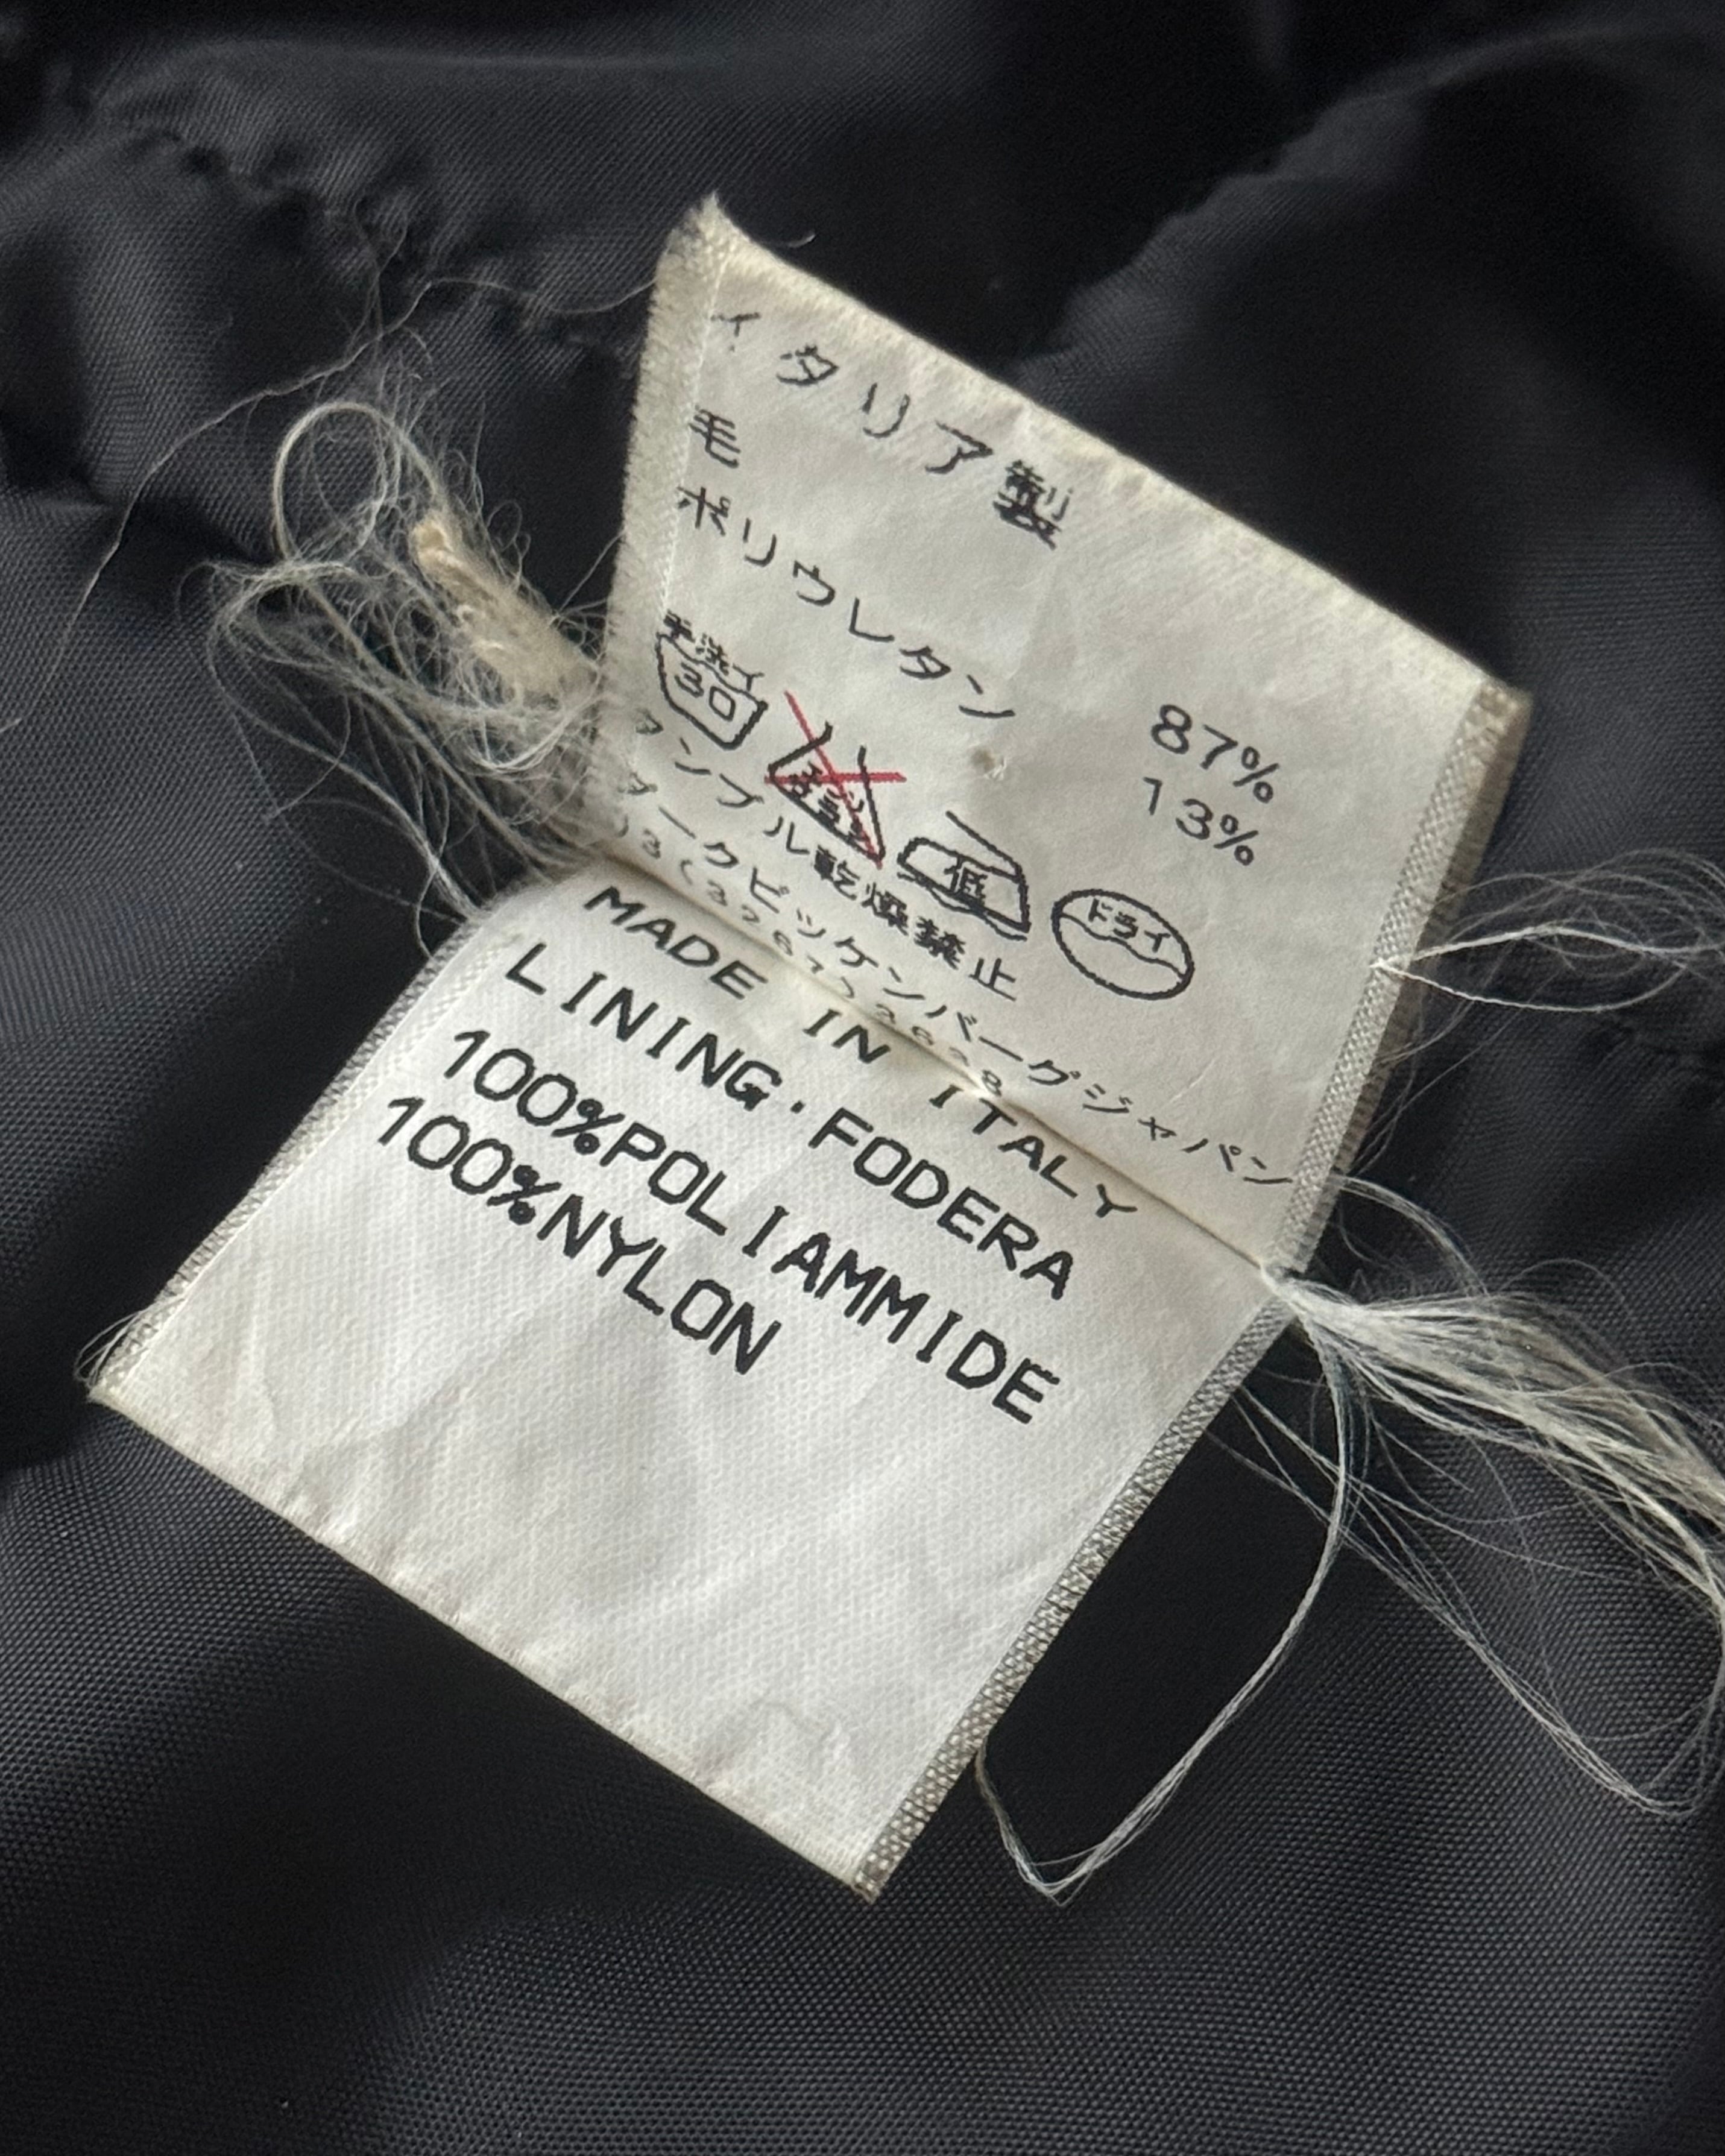 イタリア製
毛 87%
ポリウレタン 13%
手洗イ 30 エンソサラシ 低 ドライ
タンブル乾燥禁止
ダークビッケンバーグジャパン
MADE IN ITALY
LINING·FODERA
100%POLIAMMIDE
100%NYLON